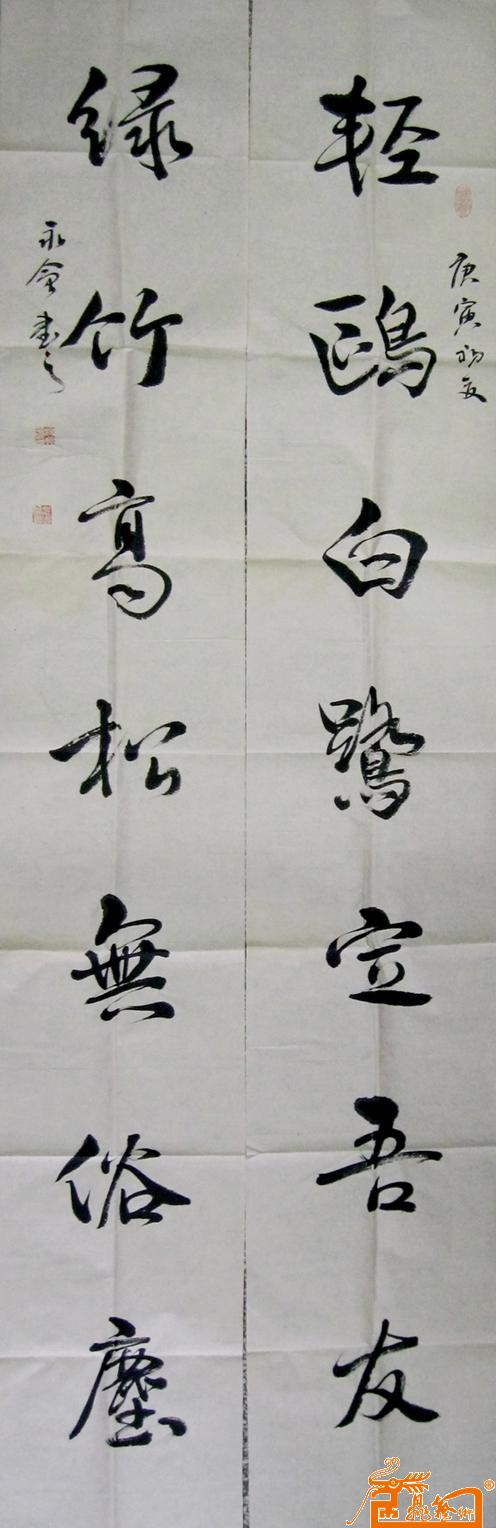 庚寅初夏
輕鷗白鷺定吾友
緑竹高松無俗塵
永會書之